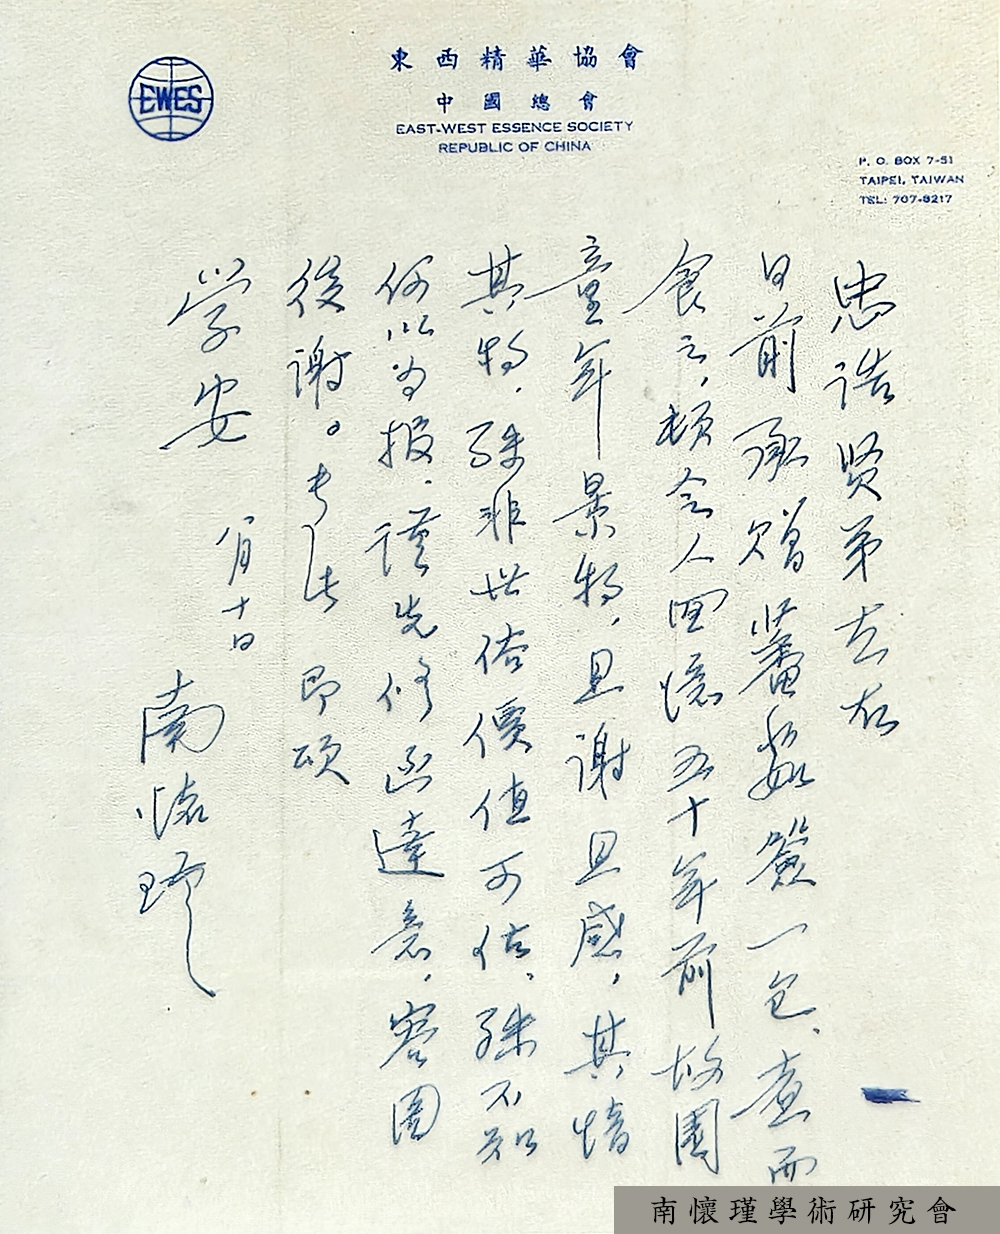 東西精華協會
中國總會
EAST-WEST ESSENCE SOCIETY
REPUBLIC OF CHINA
EWES
P. O. BOX 7-51
TAIPEI, TAIWAN
TEL: 707-8217
忠诰贤弟左右
日前承赠蕃薯簽一包、煮而
食之，頓令人回憶五十年前故園
童年景物，且谢且感，其情
其物，殊非世俗價值可估、殊不知
何以为报，謹先修函達意，容圖
後谢。专此 即頌
学安
八月十日
南懷瑾
南懷瑾學術研究會